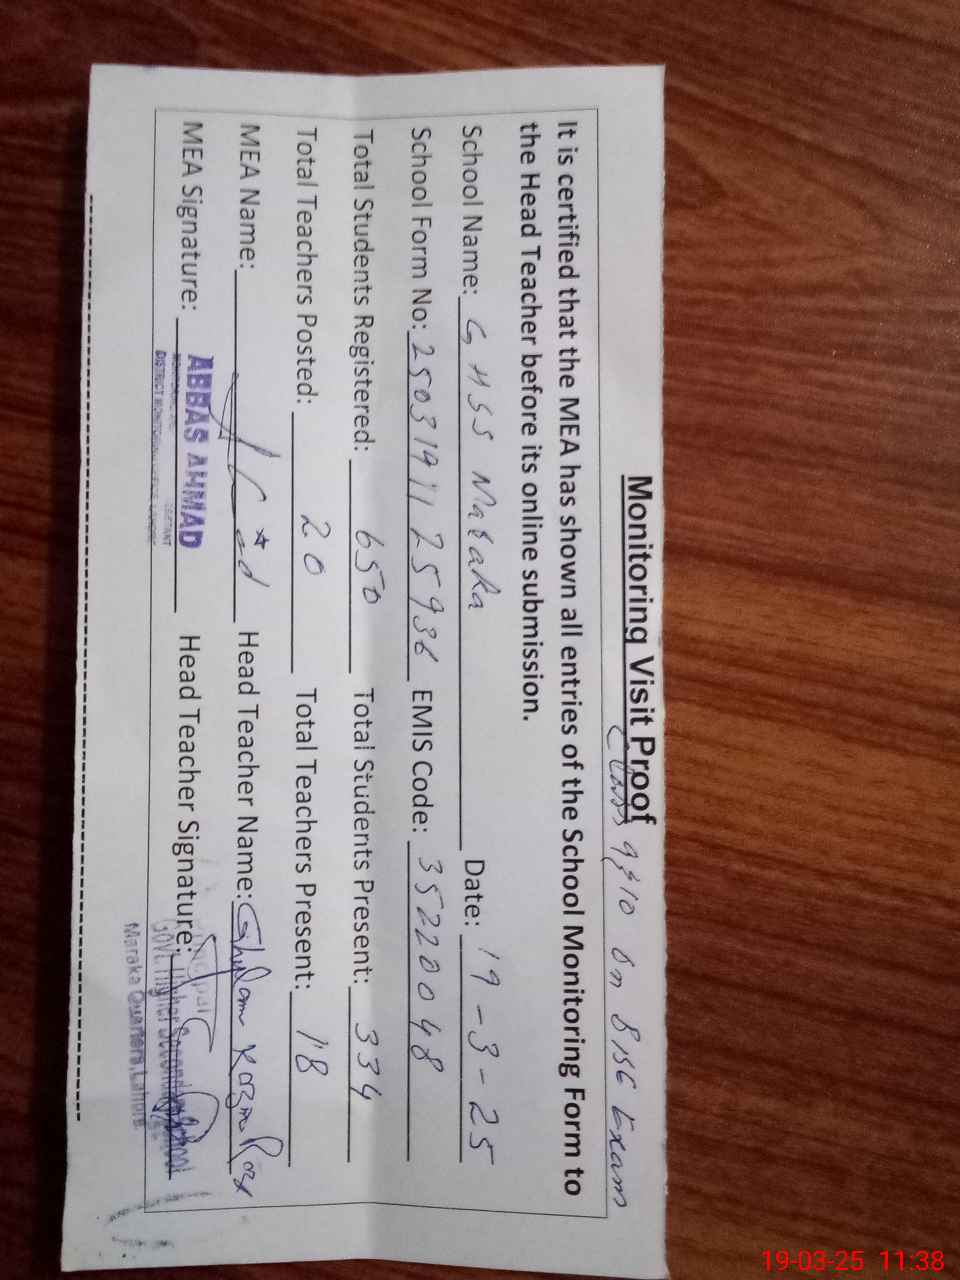 Monitoring Visit Proof
Class 9,10 on BISE Exam
It is certified that the MEA has shown all entries of the School Monitoring Form to
the Head Teacher before its online submission.
School Name: GHSS Maraka Date: 19-3-25
School Form No: 25031911 25936 EMIS Code: 35220048
Total Students Registered: 650 Total Students Present: 334
Total Teachers Posted: 20 Total Teachers Present: 18
MEA Name: Head Teacher Name: Ghulam
MEA Signature: ABBAS AHMAD Head Teacher Signature:
Principal
Govt. Higher Secondary School
Maraka Quarters, Lahore
19-03-25 11:38